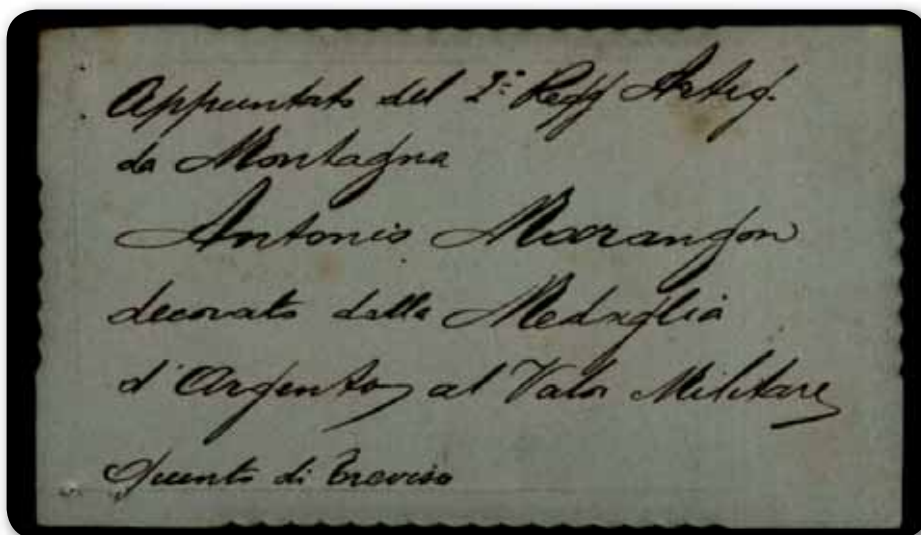 Appuntato del 2° Regg Artig.
da Montagna
Antonio Marangon
decorato dalla Medaglia
d'Argento al Valor Militare
Quinto di Treviso